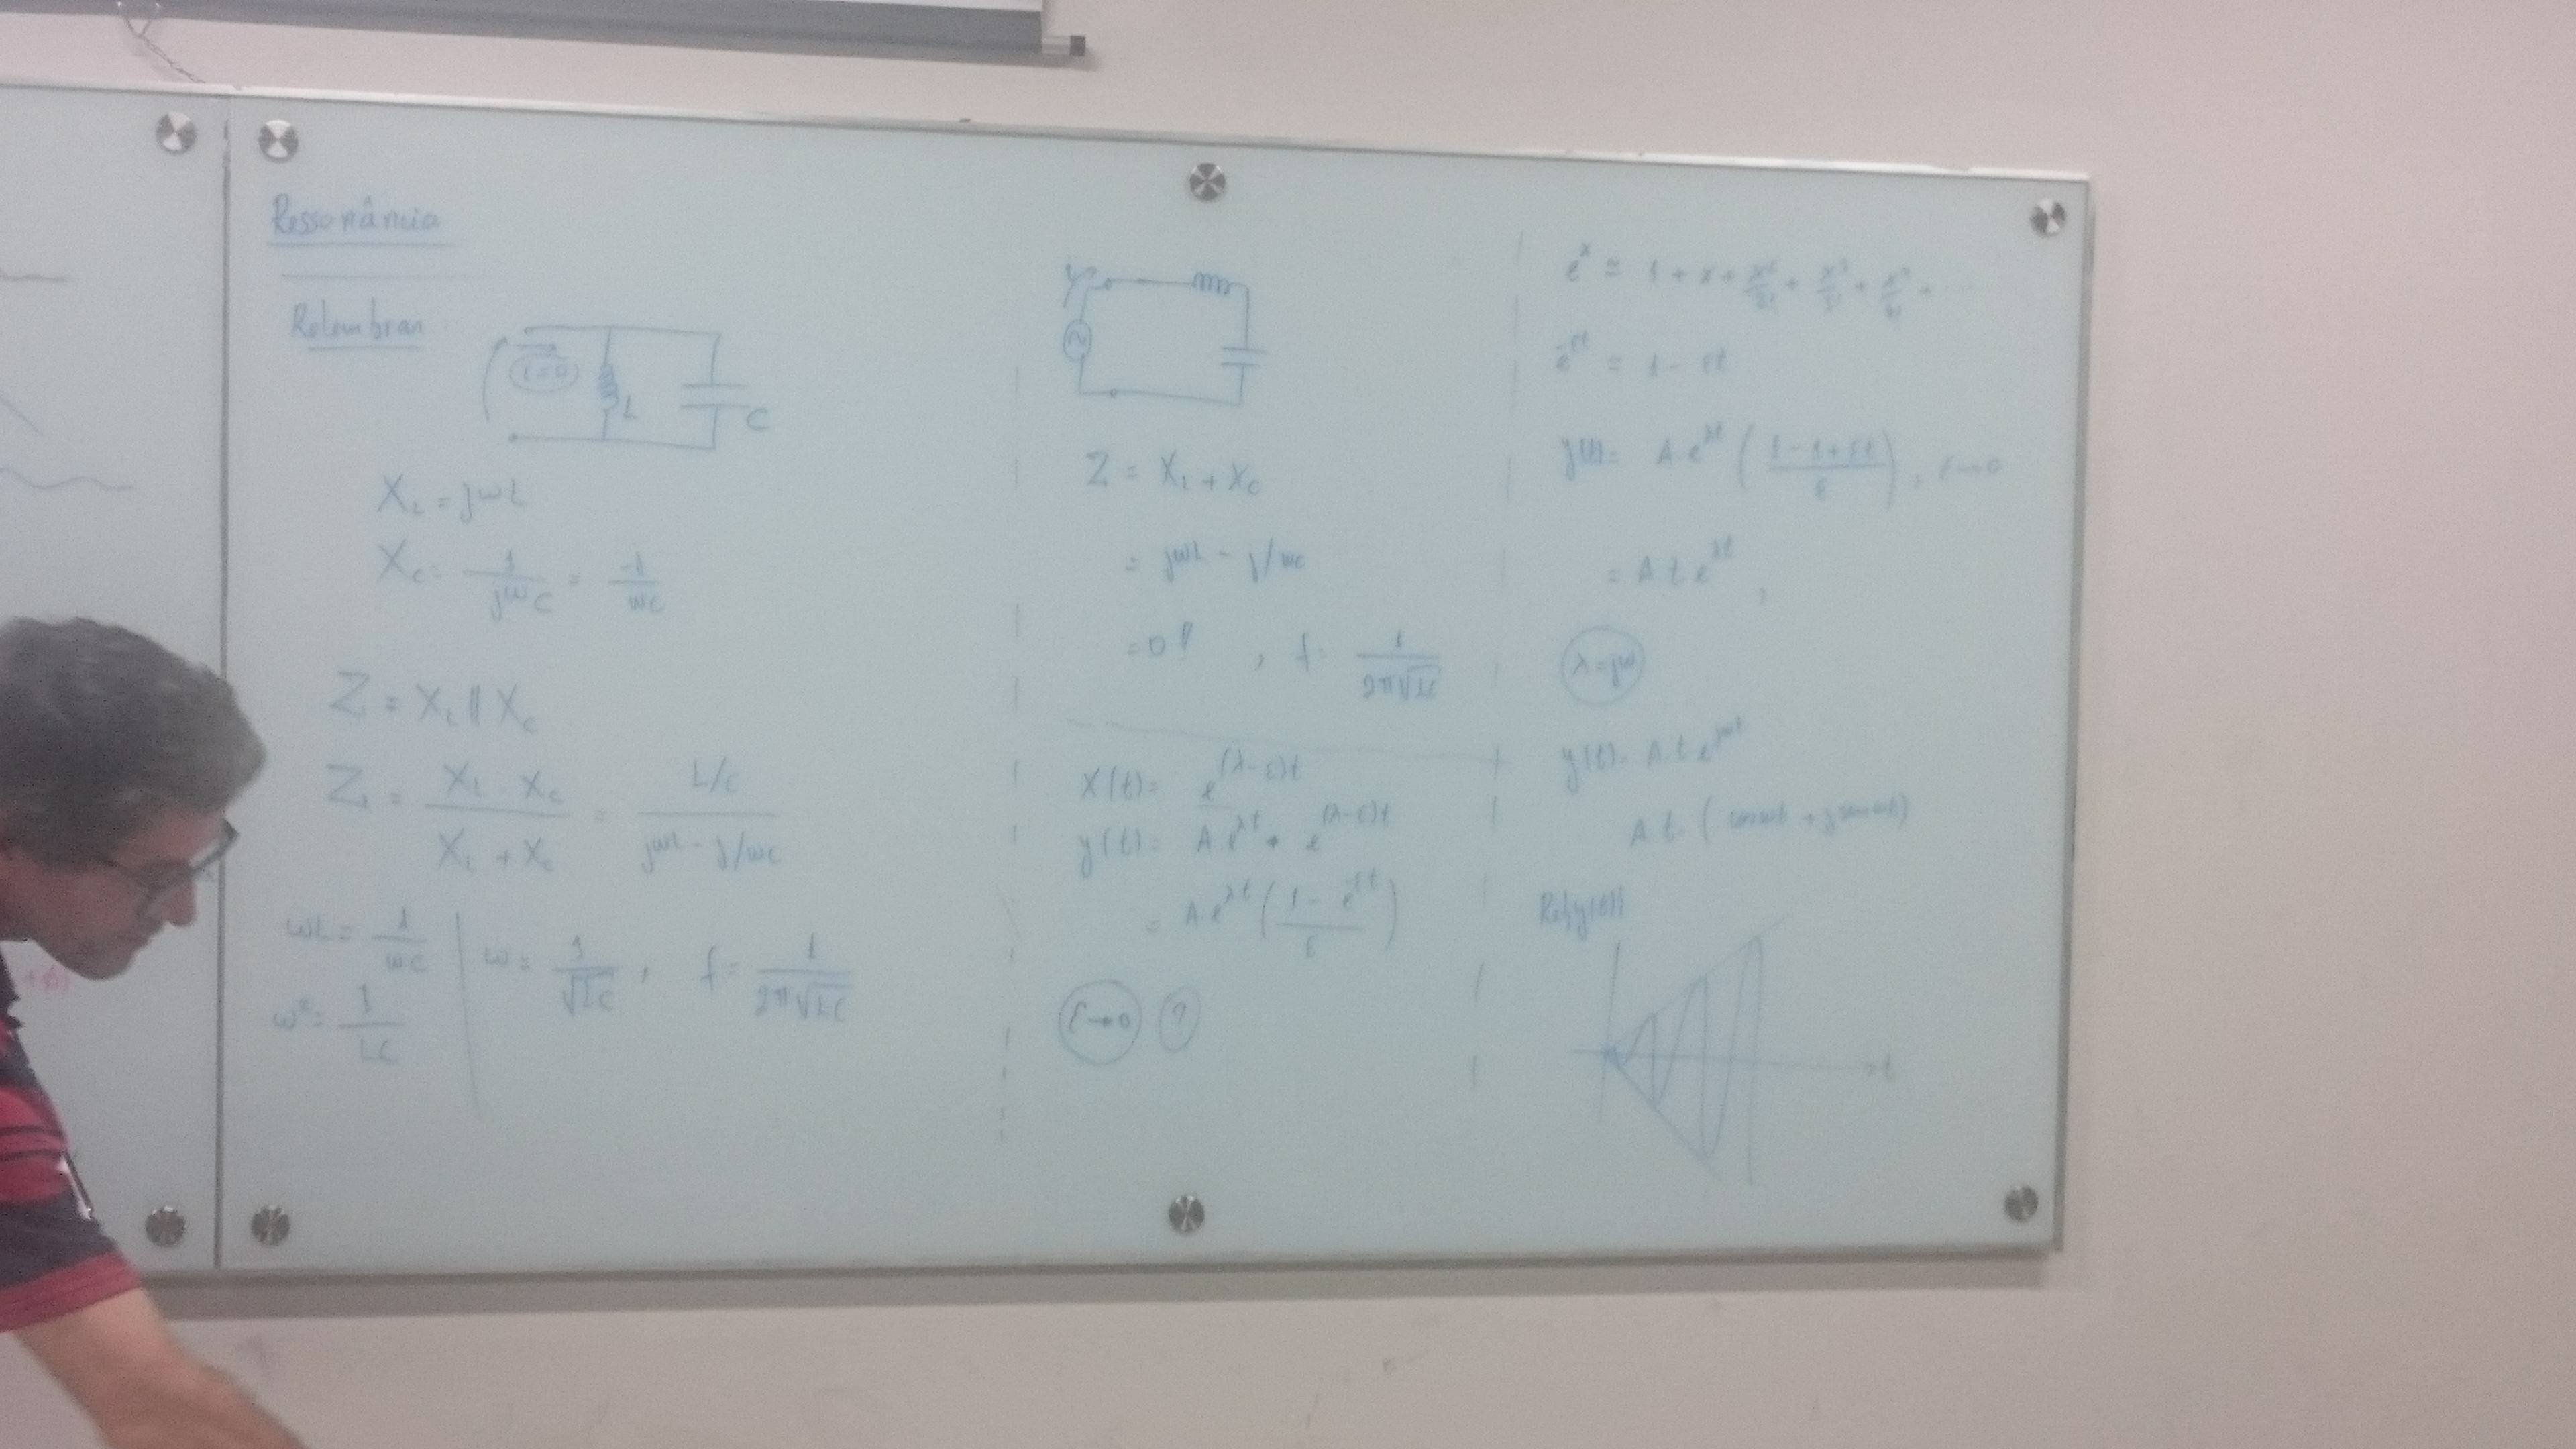 Ressonância
Relembrar
i=0
L
C
X_L = jωL
X_C = 1/(jωC) = -j/(ωC)
Z = X_L || X_C
Z = (X_L . X_C)/(X_L + X_C) = (L/C)/(jωL - j/ωC)
ωL = 1/(ωC)
ω² = 1/(LC)
ω = 1/√(LC) , f = 1/(2π√(LC))
Z = X_L + X_C
= jωL - j/ωC
= 0 ! , f = 1/(2π√(LC))
x(t) = e^((λ-ε)t)
y(t) = A e^(λt) + e^((λ-ε)t)
= A e^(λt) ( (1 - e^(-εt))/ε )
ε→0 ?
e^x ≅ 1 + x +
e^(-εt) ≅ 1 - εt
y(t) = A e^(λt) ( (1 - 1 + εt)/ε ) , ε→0
= A t e^(λt) ,
λ = jω
y(t) = A.t e^(jωt)
A t. ( cos ωt + j sen ωt)
Re{y(t)}
t